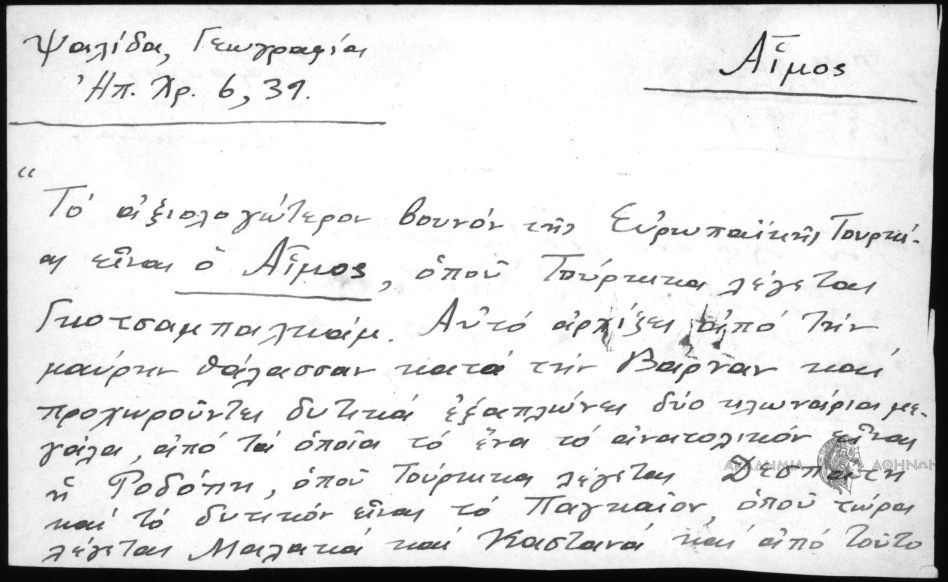 Ψαλίδα, Γεωγραφία
Ἠπ. Χρ. 6, 39.
Αἷμος
“
Τό ἀξιολογώτερον βουνόν τῆς Εὐρωπαϊκῆς Τουρκί-
ας εἶναι ὁ Αἷμος, ὁποῦ Τούρκικα λέγεται
Γκοτσαμπαλκάμ. Αὐτό ἀρχίζει ἀπό τήν
μαύρην θάλασσαν κατά τήν Βάρναν καί
προχωροῦντες δυτικά ἐξαπλώνει δύο κλωνάρια με-
γάλα, ἀπό τά ὁποῖα τό ἕνα τό ἀνατολικόν εἶναι
ἡ Ροδόπη, ὁποῦ Τούρκικα λέγεται
καί τό δυτικόν εἶναι τό Παγκαῖον, ὁποῦ τώρα
λέγεται Μαλακά καί Καστανά καί ἀπό τοῦτο
ΑΚΑΔΗΜΙΑ ΑΘΗΝΩΝ